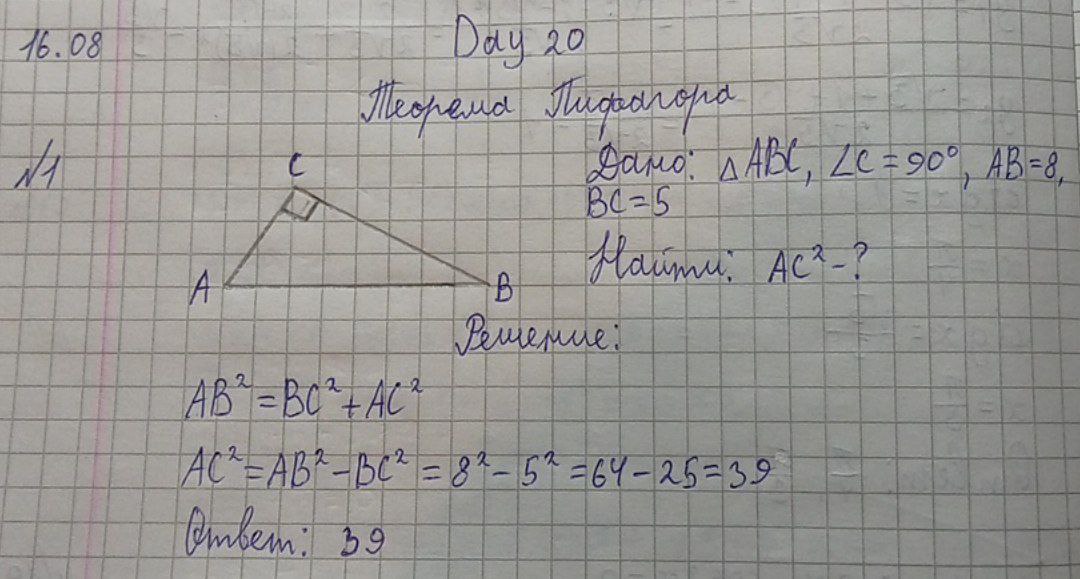 16.08
Day 20
Теорема Пифагора
№1
C
A
B
Дано: △ABC, ∠C = 90°, AB=8,
BC=5
Найти: AC² - ?
Решение:
AB² = BC² + AC²
AC² = AB² - BC² = 8² - 5² = 64 - 25 = 39
Ответ: 39